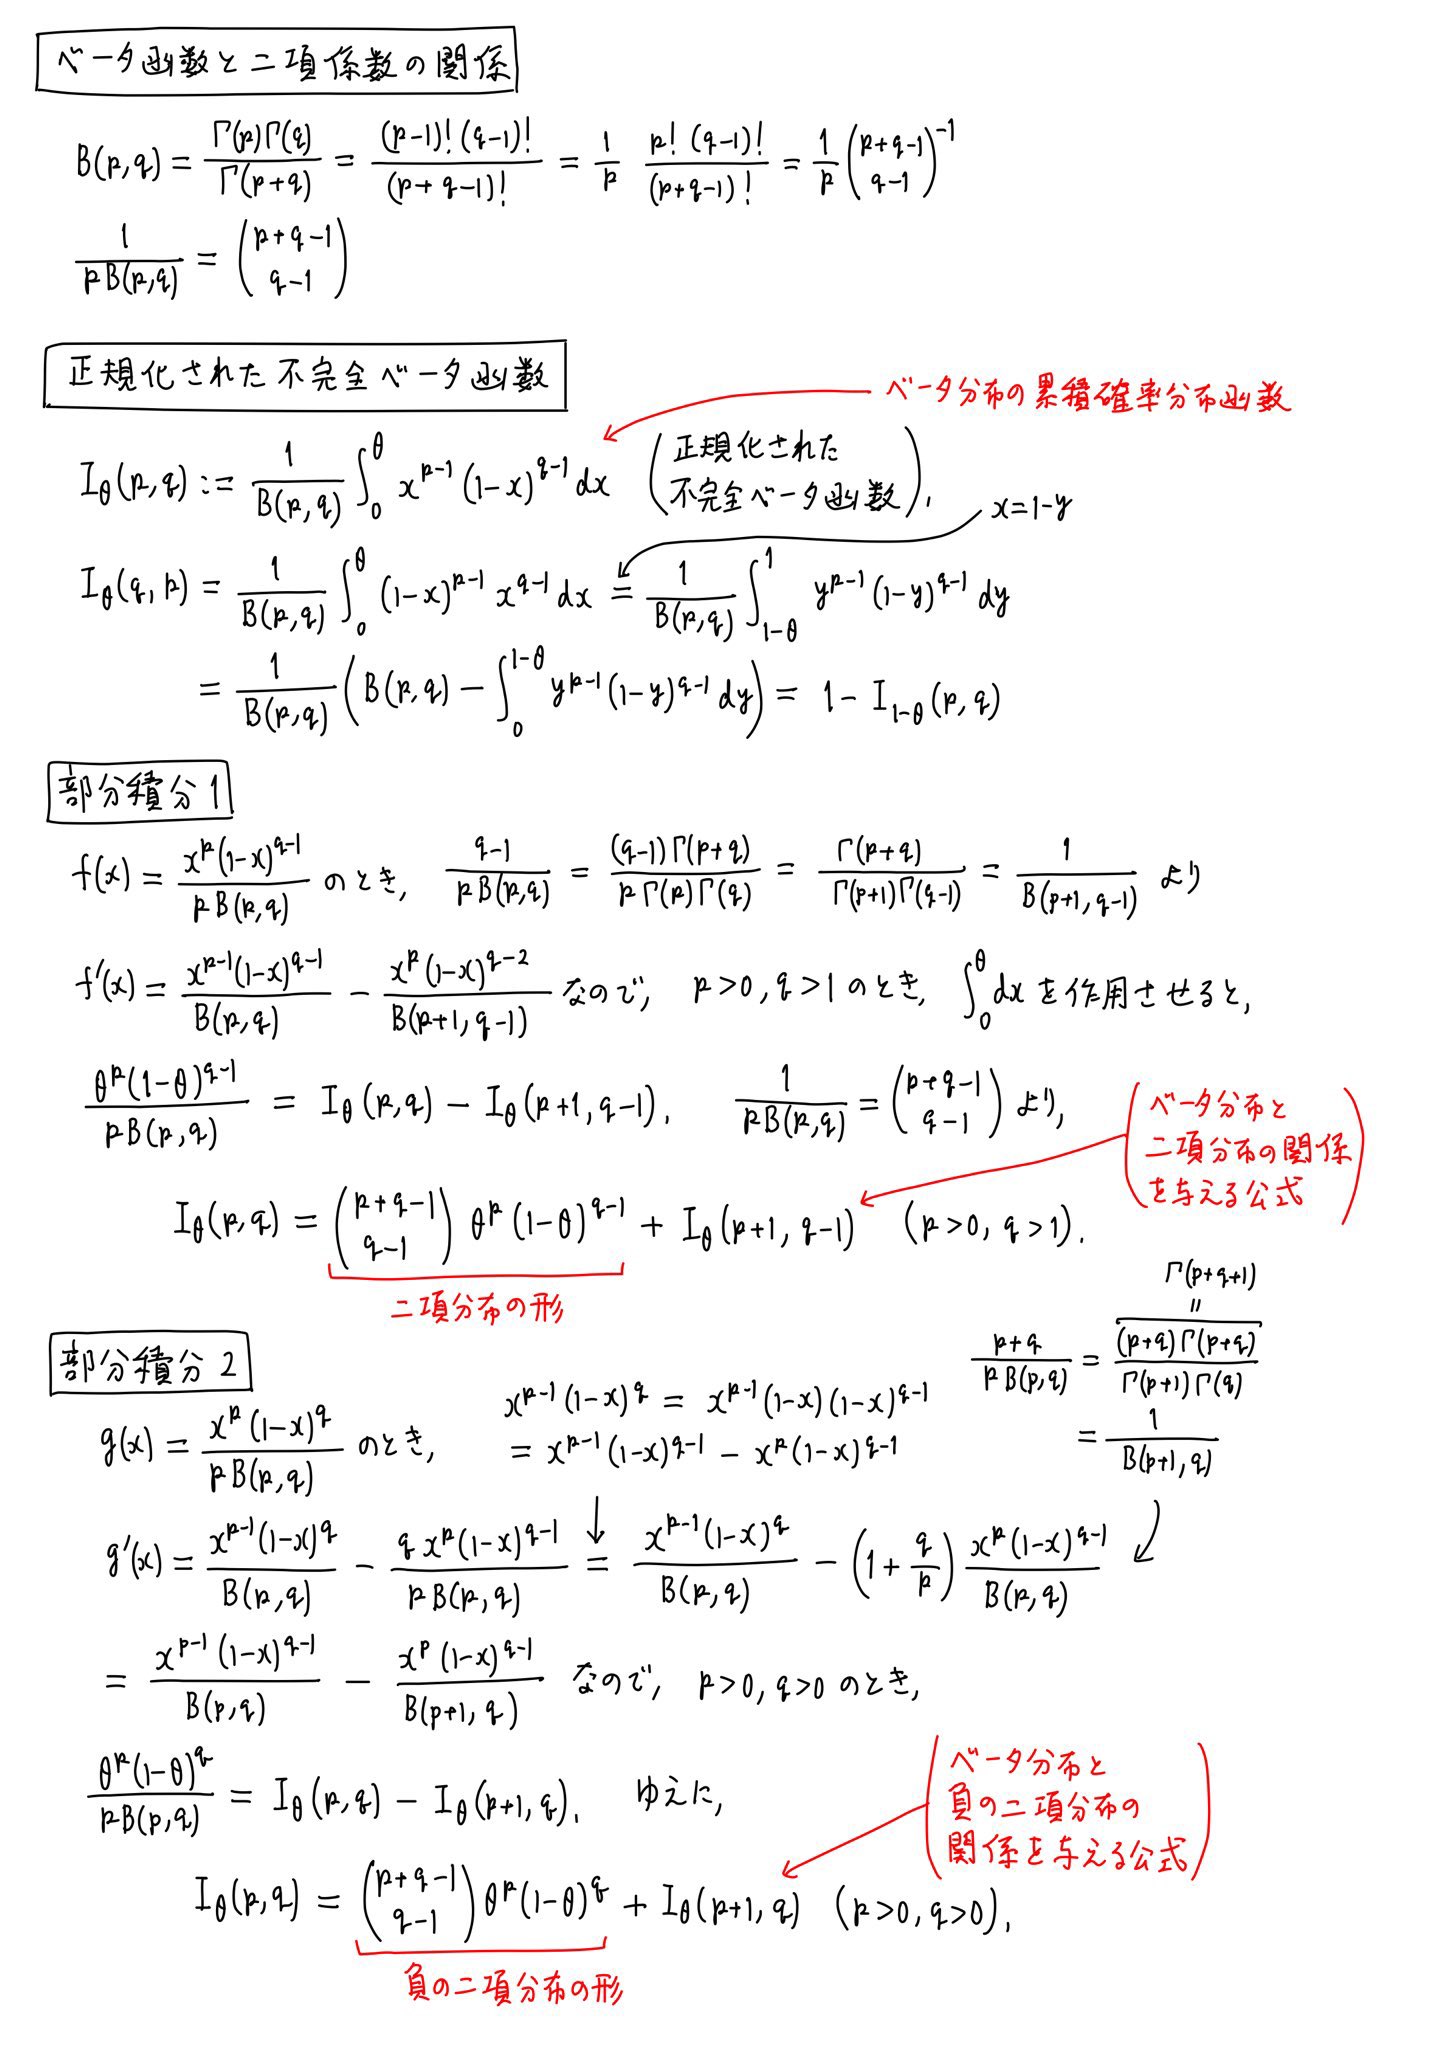 ベータ函数と二項係数の関係
B(p,q) = Γ(p)Γ(q)/Γ(p+q) = (p-1)!(q-1)!/(p+q-1)! = 1/p p!(q-1)!/(p+q-1)! = 1/p (p+q-1 q-1)^{-1}
1/(pB(p,q)) = (p+q-1 q-1)
正規化された不完全ベータ函数
ベータ分布の累積確率分布函数
I_θ(p,q) := 1/B(p,q) ∫_0^θ x^{p-1}(1-x)^{q-1}dx (正規化された不完全ベータ函数).
x=1-y
I_θ(q,p) = 1/B(p,q) ∫_0^θ (1-x)^{p-1} x^{q-1}dx = 1/B(p,q) ∫_{1-θ}^1 y^{p-1}(1-y)^{q-1}dy
= 1/B(p,q) (B(p,q) - ∫_0^{1-θ} y^{p-1}(1-y)^{q-1}dy) = 1 - I_{1-θ}(p,q)
部分積分1
f(x) = x^p(1-x)^{q-1}/(pB(p,q)) のとき, (q-1)/(pB(p,q)) = (q-1)Γ(p+q)/(pΓ(p)Γ(q)) = Γ(p+q)/(Γ(p+1)Γ(q-1)) = 1/B(p+1,q-1) より
f'(x) = x^{p-1}(1-x)^{q-1}/B(p,q) - x^p(1-x)^{q-2}/B(p+1,q-1) なので, p>0, q>1 のとき, ∫_0^θ dx を作用させると,
θ^p(1-θ)^{q-1}/(pB(p,q)) = I_θ(p,q) - I_θ(p+1,q-1). 1/(pB(p,q)) = (p+q-1 q-1) より,
(ベータ分布と
二項分布の関係
を与える公式)
I_θ(p,q) = (p+q-1 q-1) θ^p(1-θ)^{q-1} + I_θ(p+1,q-1) (p>0, q>1).
二項分布の形
部分積分2
Γ(p+q+1)
=
(p+q)/(pB(p,q)) = (p+q)Γ(p+q)/(Γ(p+1)Γ(q))
= 1/B(p+1,q)
g(x) = x^p(1-x)^q/(pB(p,q)) のとき,
x^{p-1}(1-x)^q = x^{p-1}(1-x)(1-x)^{q-1}
= x^{p-1}(1-x)^{q-1} - x^p(1-x)^{q-1}
g'(x) = x^{p-1}(1-x)^q/B(p,q) - q x^p(1-x)^{q-1}/(pB(p,q)) = x^{p-1}(1-x)^q/B(p,q) - (1+q/p) x^p(1-x)^{q-1}/B(p,q)
= x^{p-1}(1-x)^{q-1}/B(p,q) - x^p(1-x)^{q-1}/B(p+1,q) なので, p>0, q>0 のとき,
θ^p(1-θ)^q/(pB(p,q)) = I_θ(p,q) - I_θ(p+1,q). ゆえに,
(ベータ分布と
負の二項分布の
関係を与える公式)
I_θ(p,q) = (p+q-1 q-1) θ^p(1-θ)^q + I_θ(p+1,q) (p>0, q>0).
負の二項分布の形